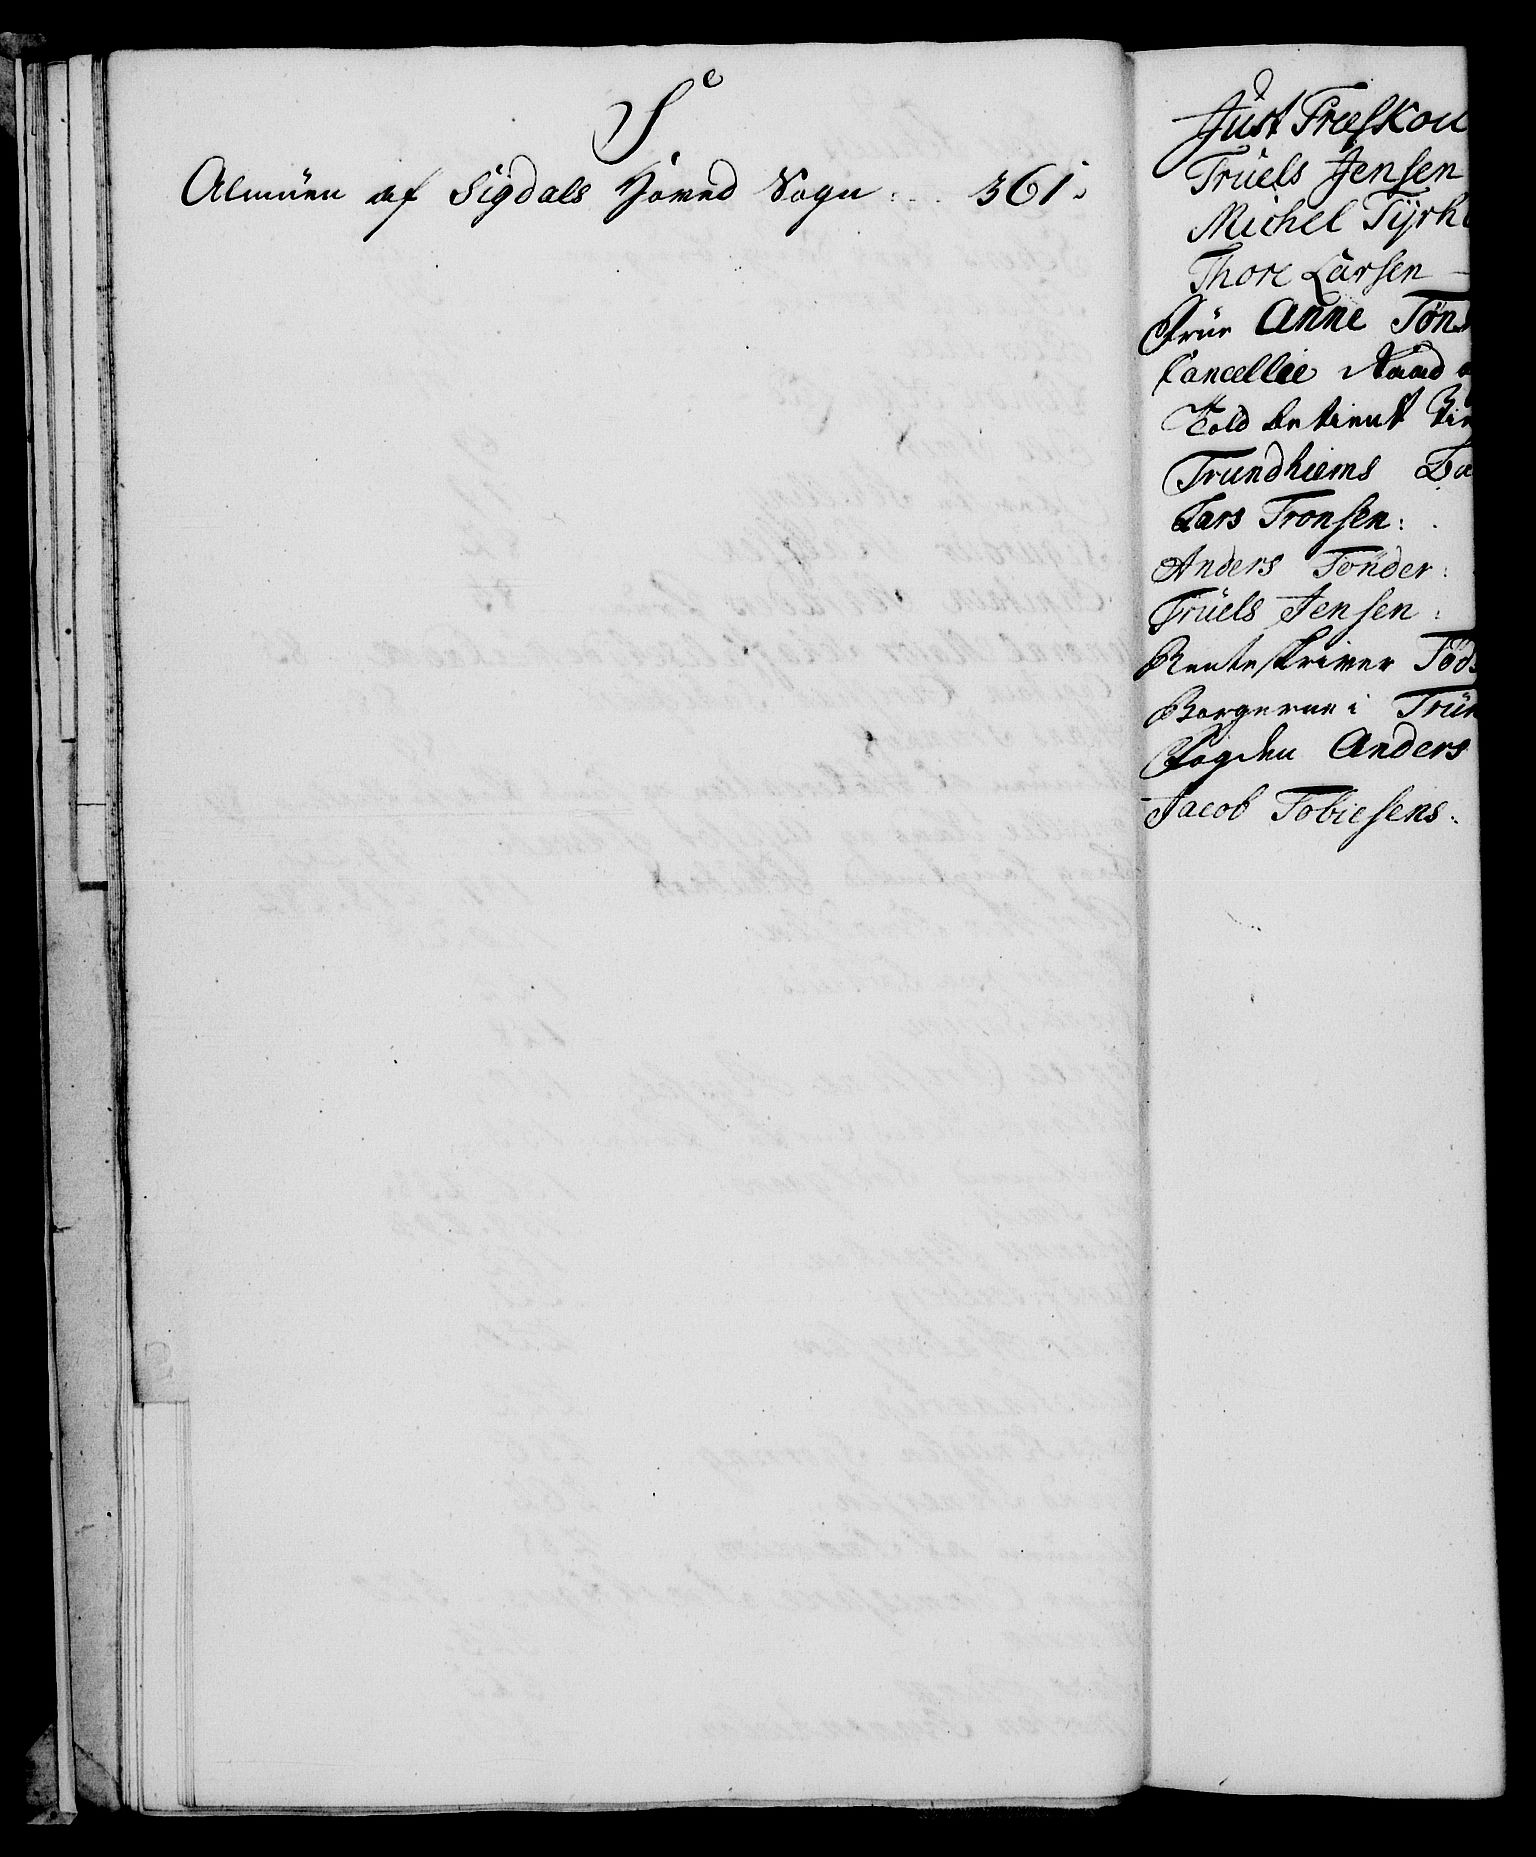 S
Almüen af Sigdals Hoved Sogn: . . 361.
Just Træskou
Trüels Jensen
Michel Tyrh
Thore Larsen —
Frue Anne Tön
Cancellie Raad
Told betient
Trundhiems
Lars Tronsen:
Anders Tönder:
Trüels Jensen:
Renteskriver Töd
Borgerne i Trün
Fogden Anders
Jacob Tobiesens.